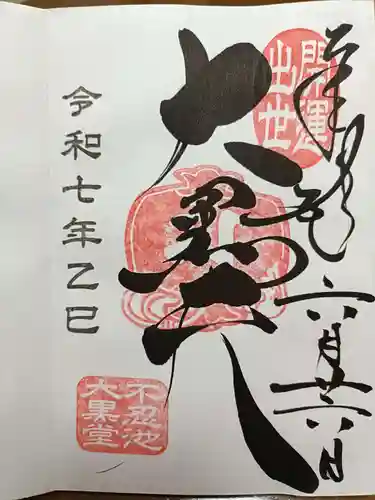 開運
出世
奉拝
六月廿六日
大黒天
令和七年乙巳
不忍池
大黒堂